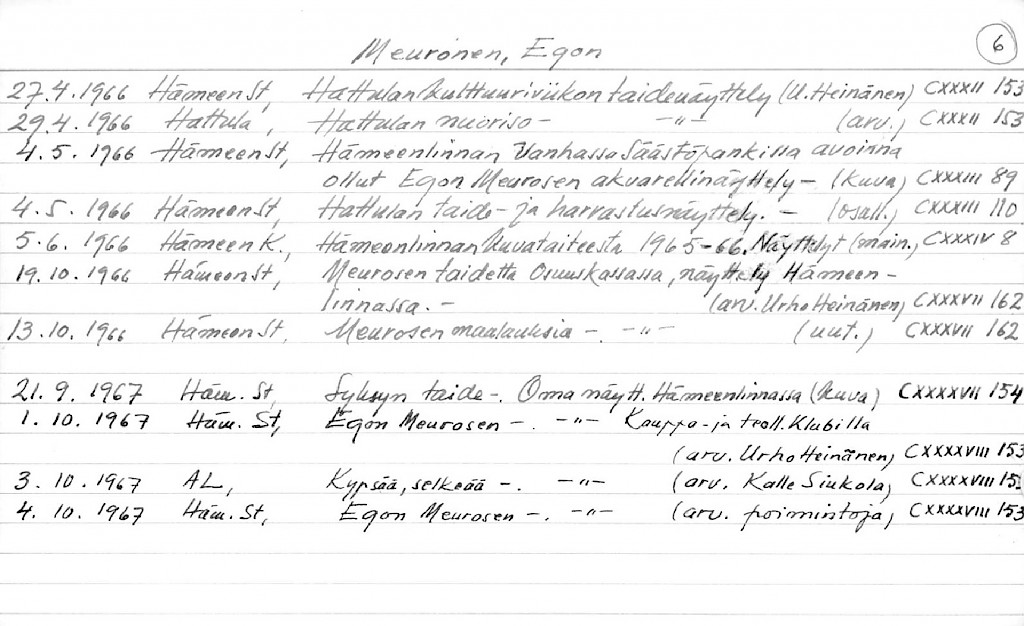 6
Meuronen, Egon
27.4.1966 Hämeen St, Hattulan Kulttuuriviikon taidenäyttely (U. Heinänen) CXXXII 153
29.4.1966 Hattula, Hattulan nuoriso- -"- (arv.) CXXXII 153
4.5.1966 Hämeen St, Hämeenlinnan Vanhassa Säästöpankissa avoinna
ollut Egon Meurosen akvarellinäyttely - (Kuva) CXXXIII 89
4.5.1966 Hämeen St, Hattulan taide- ja harrastusnäyttely. - (osall.) CXXXIII 110
5.6.1966 Hämeen K., Hämeenlinnan Kuvataiteesta 1965-66. Näyttelyt (main.) CXXXIV 8
19.10.1966 Hämeen St, Meurosen taidetta Osuuskassassa, näyttely Hämeen-
linnassa. - (arv. Urho Heinänen) CXXXVII 162
13.10.1966 Hämeen St, Meurosen maalauksia - -"- (uut.) CXXXVII 162
21.9.1967 Häm. St, Syksyn taide -. Oma näytt. Hämeenlinnassa (Kuva) CXXXXVII 154
1.10.1967 Häm. St, Egon Meurosen -. -"- Kauppa- ja teoll. Klubilla
(arv. Urho Heinänen) CXXXXVIII 153
3.10.1967 AL, Kypsää, selkeää -. -"- (arv. Kalle Siukola) CXXXXVIII
4.10.1967 Häm. St, Egon Meurosen -. -"- (arv. poimintoja) CXXXXVIII 153